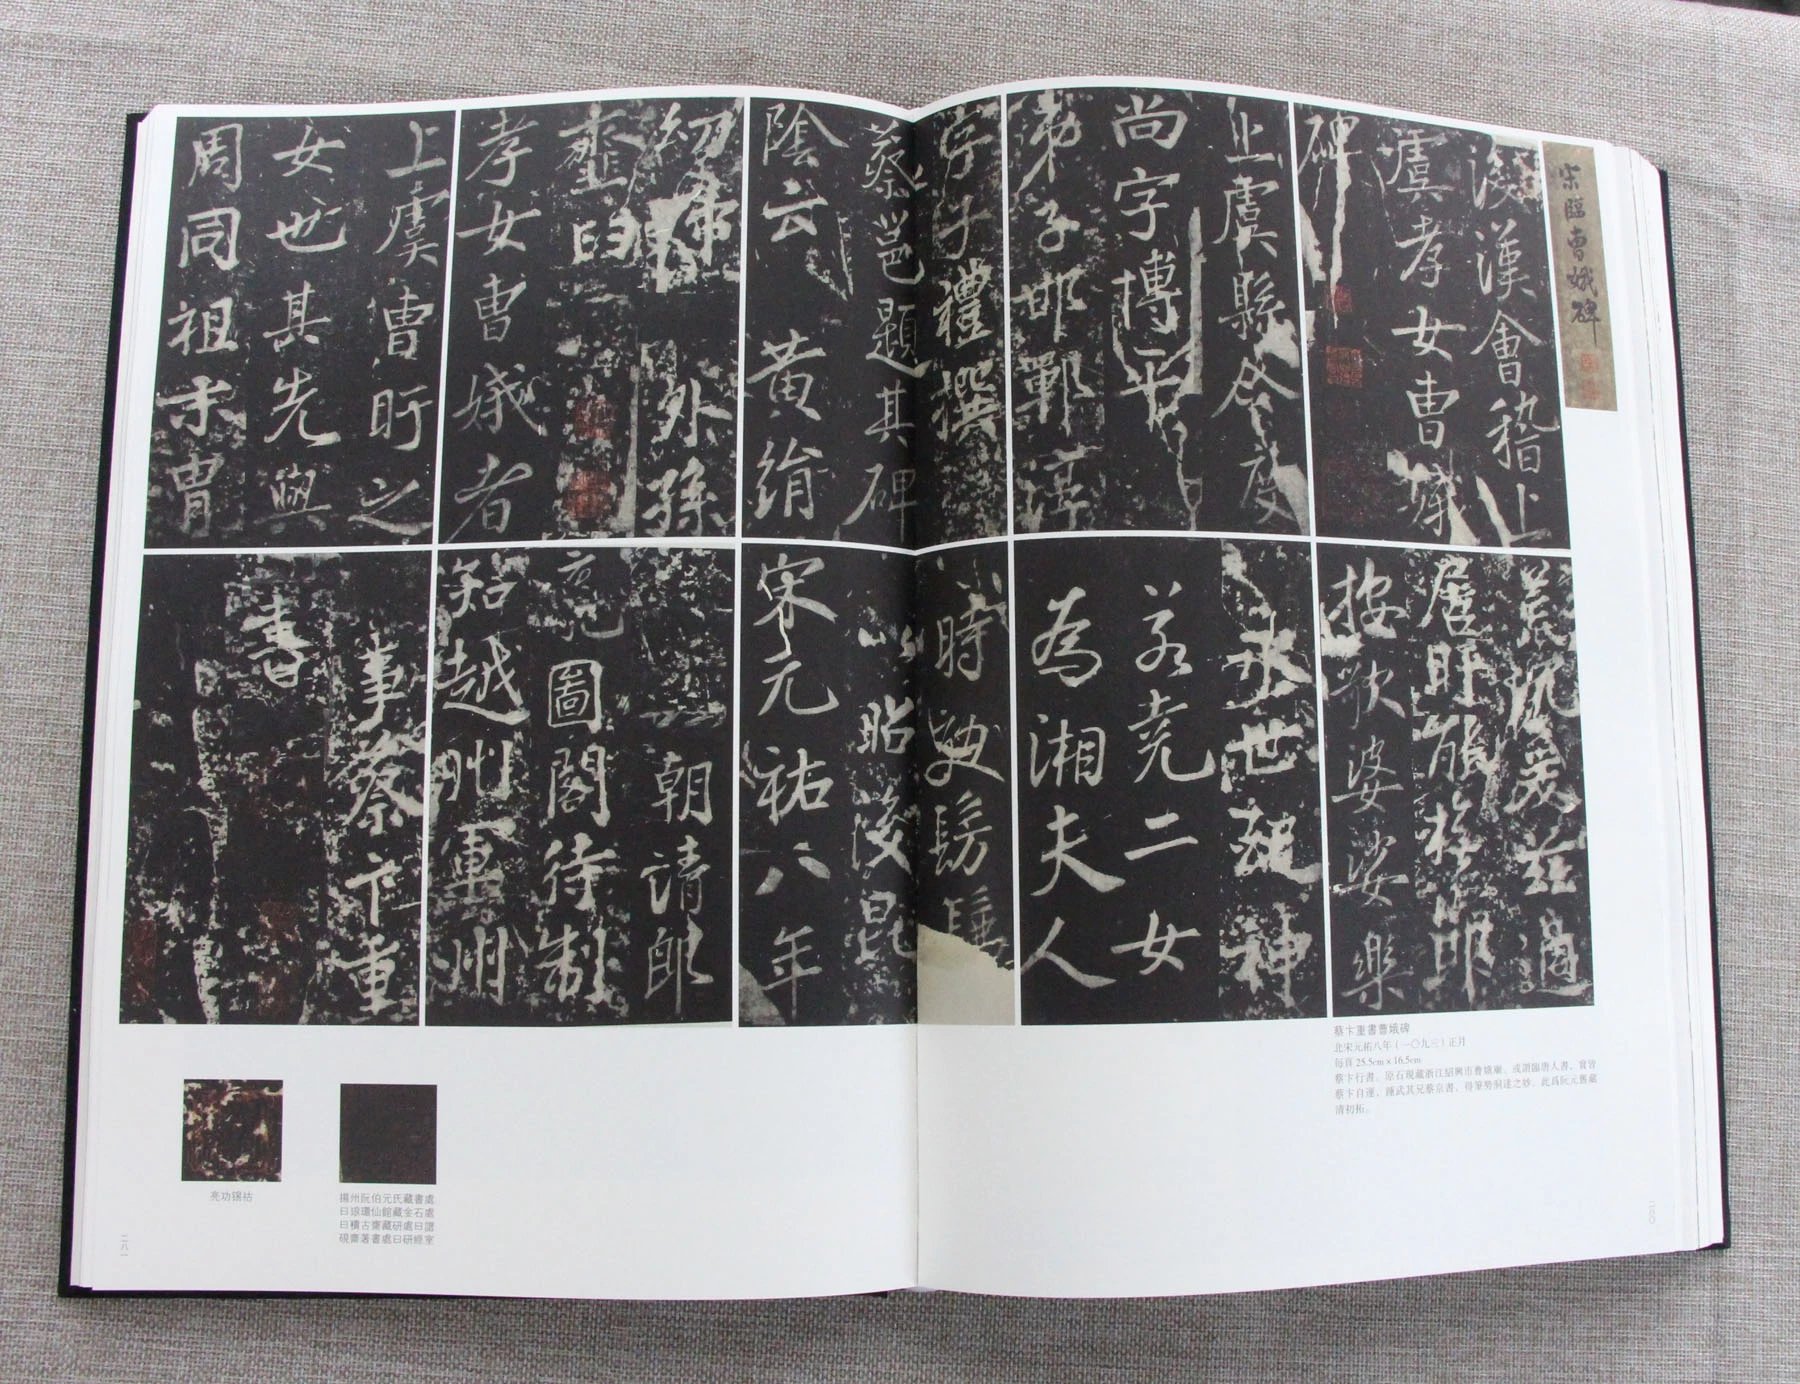 宋臨曹娥碑
後漢會稽上
虞孝女曹娥
碑
上虞縣令度
尚字博平
弟子邯鄲淳
字子禮撰
蔡邕題其碑
陰云 黃絹
幼婦 外孫
齏臼
孝女曹娥者
上虞曹盱之
女也其先與
周同祖末胄
荒沉爰茲適
居盱能撫節
按歌婆娑樂
永世配神
若堯二女
為湘夫人
時效髣髴
以昭後昆
宋元祐八年
朝請郎
圖閣待制
知越州軍州
事蔡卞重
書
蔡卞重書曹娥碑
北宋元祐八年(一〇九三)正月
每頁 25.5cm × 16.5cm
蔡卞行書。原石現藏浙江紹興市曹娥廟。或謂臨唐人書,實皆
蔡卞自運,踵武其兄蔡京書,得筆勢洞達之妙。此爲阮元舊藏
清初拓。
二八〇
揚州阮伯元氏藏書處
曰琅環仙館藏金石處
曰積古齋藏研處曰譜
硯齋著書處曰研經室
亮功錦祜
二八一